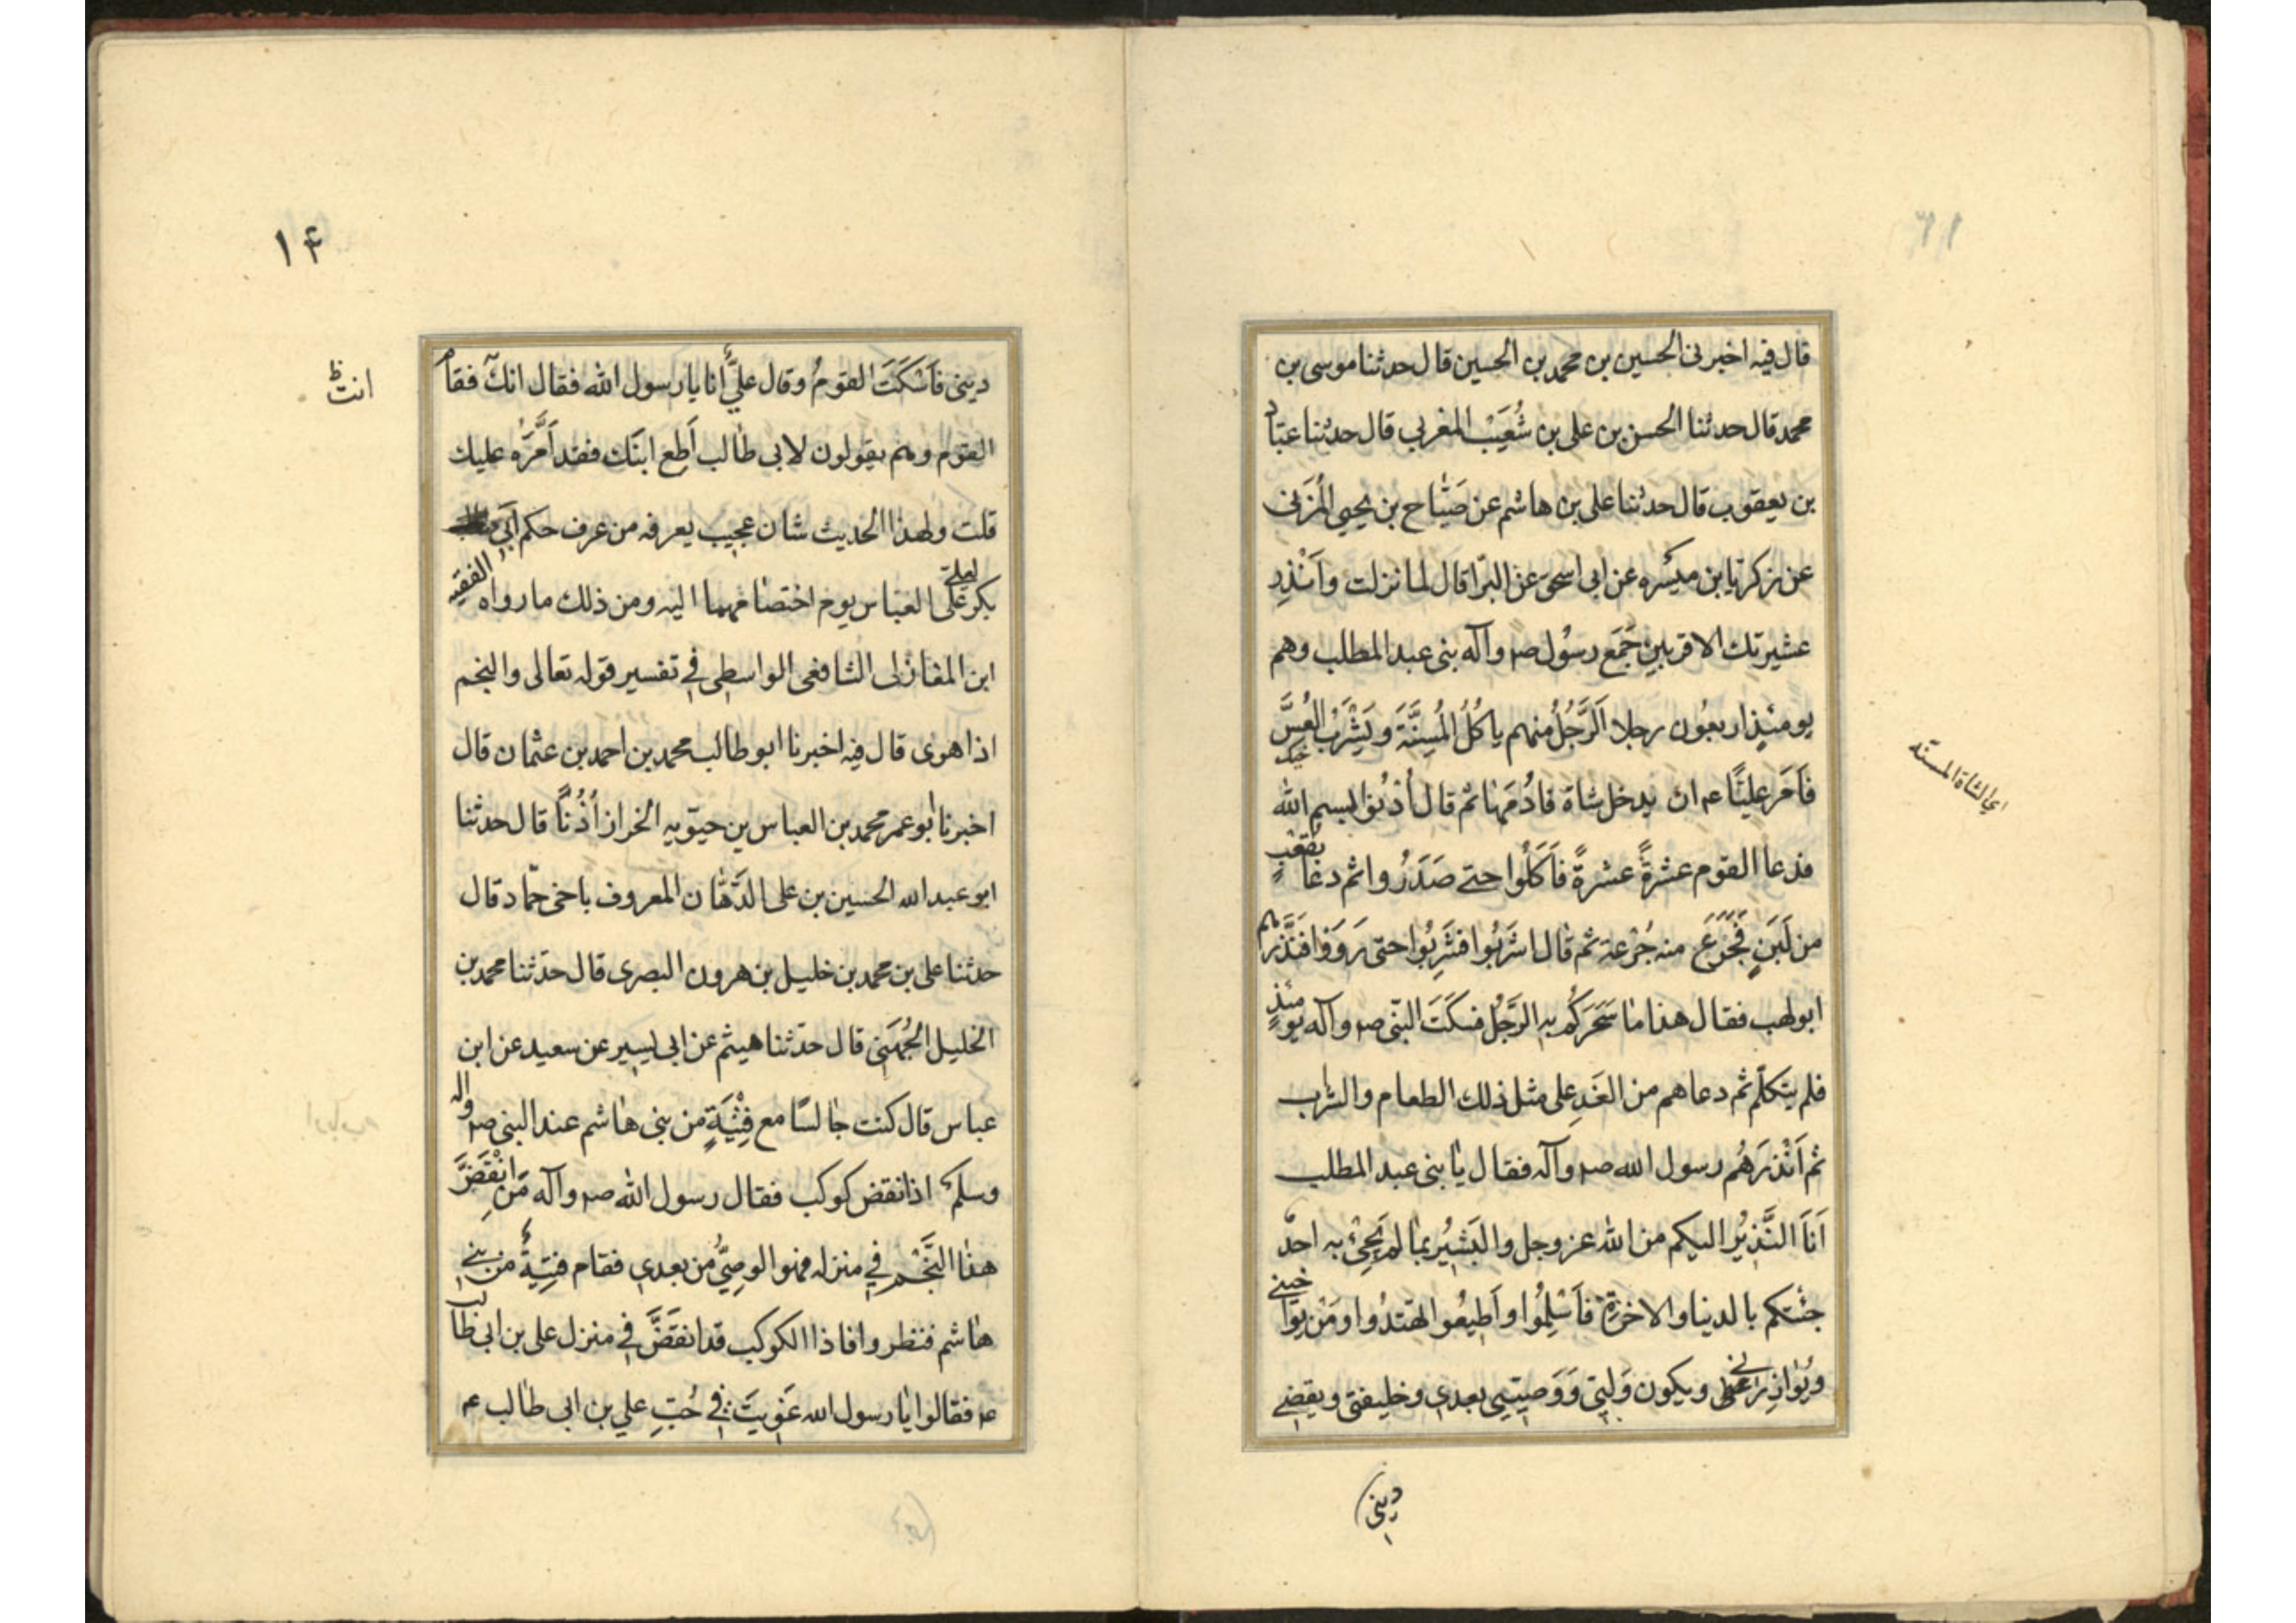 قال فيه اخبرنى الحسين بن محمد بن الحسين قال حدثنا موسى بن
محمد قال حدثنا الحسن بن على بن شُعَيْب المغربي قال حدثنا عبّاد
بن يعقوب قال حدثنا على بن هاشم عن صَبّاح بن يحيى المُزَنى
عن زكريّا بن ميسَره عن ابى اسحق عن البرّا قال لما نزلت وَاَنْذِر
عشيرتك الاقربين جَمَع رسُول صم وآله بنى عبد المطلب وهم
يومئذٍ اربعُون رجلا اَلرَّجُلُ منهم ياكُلُ المُسِنَّةَ وَيَشْرَبُ العُسَّ
فَاَمَر عليًّا عم ان يدخل شاة فادُمَهٰا ثم قال اُدْنوا بسم الله
فدعا القوم عشرةً عشرةً فَاَكَلُوا حتى صَدَرُوا ثم دعٰا بقَعْبٍ
من لَبَنٍ فَجَرَعَ منه جُرْعة ثم قال اشرَبُوا فشَرِبُوا حتى رَوَوْا فبَدَرَهم
ابو لهب فقال هذا مٰا سَحَرَكُم به الرَّجُل فسكَتَ النّبى صم وآله يومئذٍ
فلم يتكلّم ثم دعاهم من الغَدِ على مثل ذلك الطعام والشراب
ثم اَنْذَرَهُم رسول الله صم وآله فقال يٰا بنى عبد المطلب
اَنَا النَّذيْرُ اليكم من الله عز وجل والبَشيْرُ بمٰا لم يَجِئْ به احدٌ
جئتكم بالدنيا والاخرةِ فاَسْلِمُوا واَطيعُوا تهتدُوا ومَنْ يوٰاخينى
ويُوٰازِرنى ويكون وَليّى وَوَصيّيى بعدى وخليفتى ويقضى
اى الشاة المسنة
دينى
١٤
دينى فَاَسْكَتَ القومُ وقال علىٌّ أنا يا رسول الله فقال انتَ فقام
القوم وهم يقولون لابى طالب اَطِعْ ابنَك فقد اَمَّرَهُ عليك
قلت ولهذا الحديث شان عجيب يعرفه من عرف حكم اَبى
بكر لعلى على العبّاس يوم اختصٰامهما اليه ومن ذلك ما رواه الفقيه
ابن المغازلى الشافعى الواسطى فى تفسير قوله تعالى والنجم
اذا هوى قال فيه اخبرنا ابو طالب محمد بن احمد بن عثمان قال
اخبرنا ابو عمر محمد بن العباس بن حيّويه الخراز اُذْنًا قال حدثنا
ابو عبد الله الحسين بن على الدَّهّان المعروف باخى حمّاد قال
حدثنا على بن محمد بن خليل بن هرون البصرى قال حدّثنا محمد بن
الخليل الجُهَنى قال حدّثنا هيثم عن ابى يسير عن سعيد عن ابن
عباس قال كنت جٰالسًا مع فِتْيَةٍ من بنى هٰاشم عند النبى صم واله
وسلم اذ انقض كوكب فقال رسول الله صم وآله مَنِ انْقَضَّ
هذا النَّجْم فى منزله فهو الوصِىُّ من بعدى فقام فتيةٌ من بنى
هٰاشم فنظروا فاذا الكوكب قد انقَضَّ فى منزل على بن ابى طالب
عم فقالوا يٰا رسول الله غَوِيتَ فى حُبِّ على بن ابى طالب عم
انت ظ